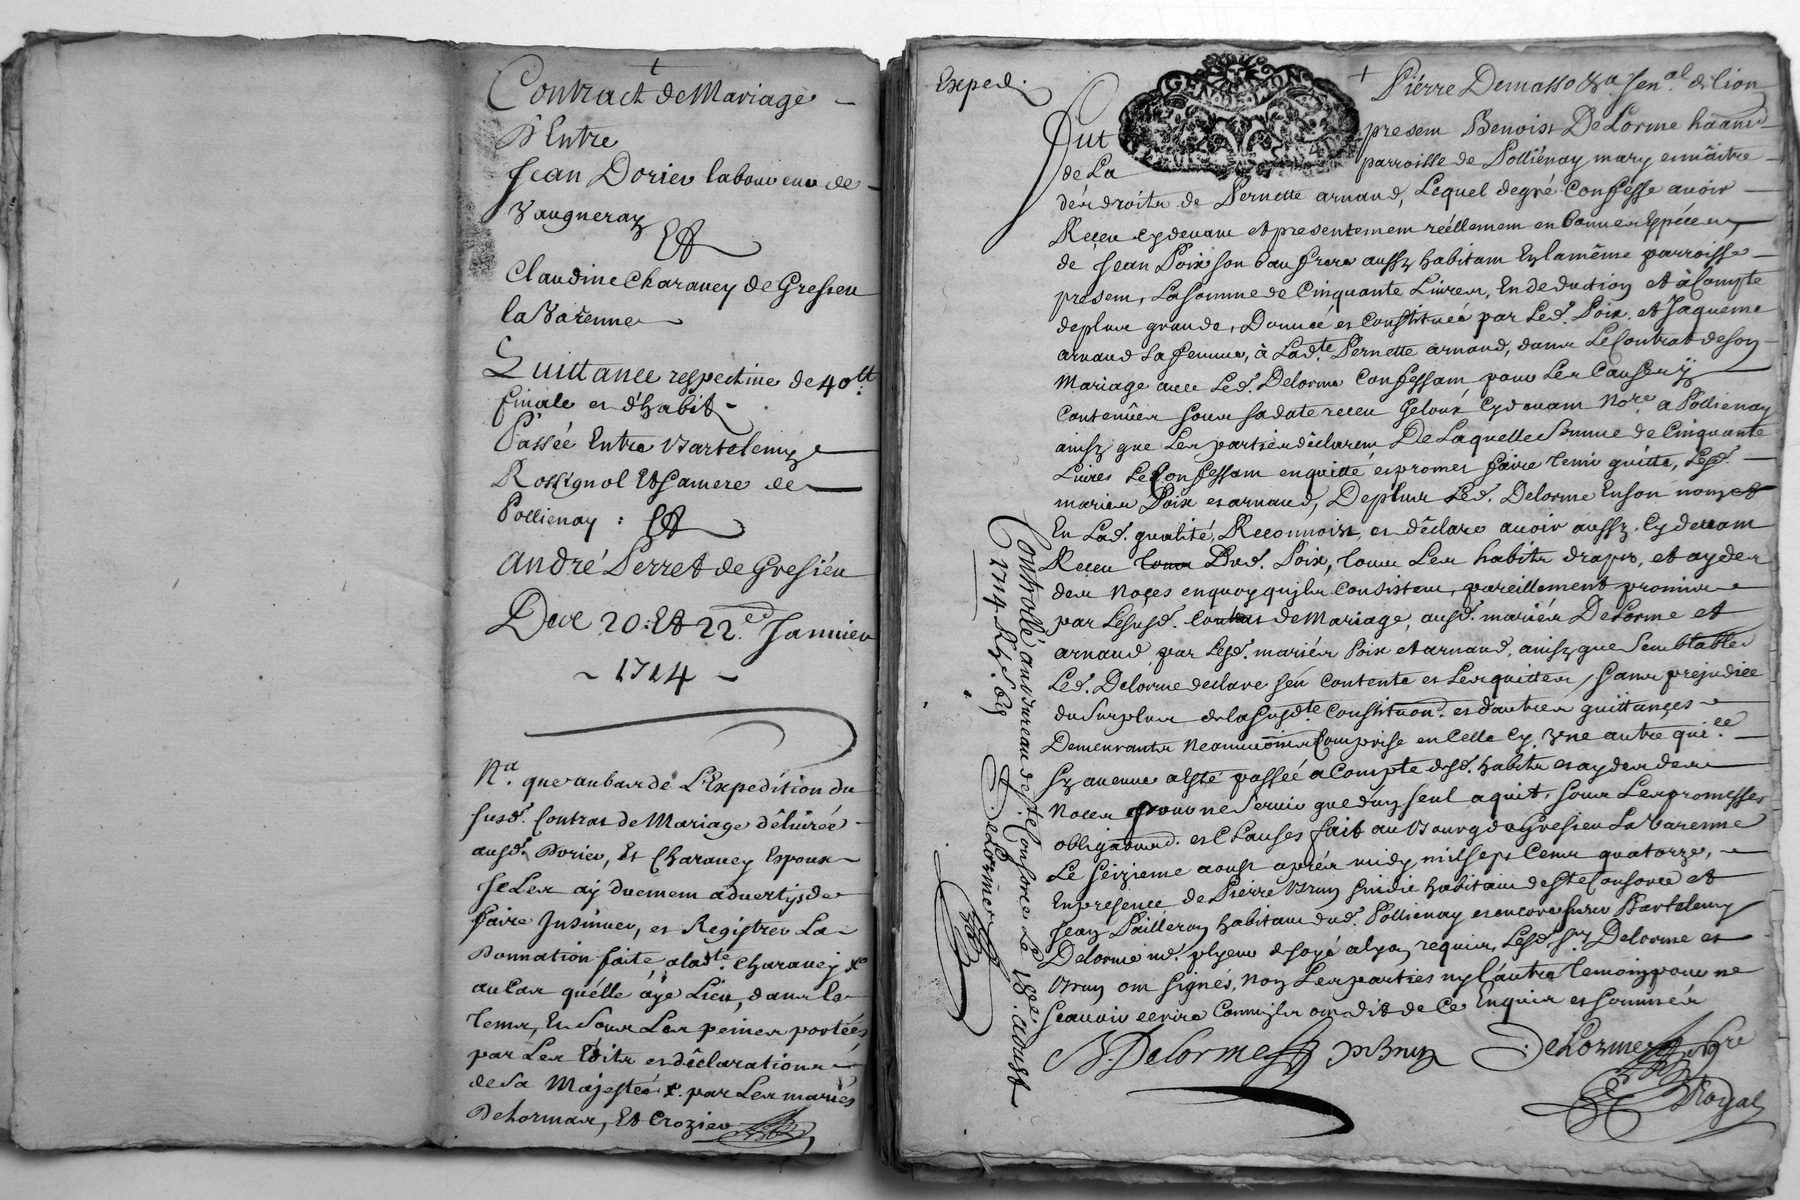 Contract de Mariage
D'Entre
Jean Dorier laboureur de
Vaugneray
Et
Claudine Charavey de Gresieu
la Varenne
Quittance respective de 40tt
finale et d'habit
Passée Entre Bartelemy
Rossignol Et Sa mere de
Pollienay : Et
André Perret de Gresieu
Due 20. Et 22e Janvier
1714
Na. que au bas de L'Expedition du
susd. Contrat de Mariage délivrée
ausd. Dorier, Et Charavey Espoux
je Les ay duement advertys de
faire Insinuer, et Registrer La
Donnation faite a lad.te Charavey
au Cas qu'elle aye Lieu, dans le
tems, Et Sous Les peines portées
par Les Edits et déclarations
de Sa Majesté &. par Les mariés
Delormas, Et Crozier
Exped.
Pierre Demasso &a sen.al de lion
GEN. DE LYON
Fut present Benoist DeLorme habitant
de La parroisse de Pollienay mary et maître
des droits de Pernette arnaud, Lequel de gré Confesse avoir
Reçeu cy devant et presentement réellement en bonnes Espéces,
de Jean Poix son beau frere aussy habitant En la même parroisse
present, La Somme de Cinquante Livres, En deduction et à Compte
de plus grande, Donnée et Constituée par Led. Poix, et Jaqueme
arnaud sa femme, à Lad.te Pernette arnaud, dans Le Contrat de son
Mariage avec Led. Delorme Confessant pour Les Causes y
Contenües sous sa date reçeu Geloux Cy devant No.re a Pollienay
ainsy que Les parties déclarent De Laquelle Somme de Cinquante
Livres Le Confessant en quitte et promet faire tenir quitte, Lesd.
mariés Poix et arnaud, De plus Led. Delorme En son nom et
En Lad. qualité, Reconnoist, et déclare avoir aussy, Cy devant
Reçeu Dud. Poix, tous Les habits draps, et aydes
des Noçes en quoy qu'ils Consistent, pareillement promis
par Lesusd. Contrat de Mariage, ausd. mariés DeLorme et
arnaud par Lesd. mariés Poix et arnaud, ainsy que Semblable
Led. Delorme declare s'en Contente et Les quittes, sans prejudice
du Surplus de la susd.te Constituon. et d'autres quittançes
Demeurants Neammoins Comprise en Celle Cy, Une autre qui.ce
Sy aucune a Esté passée a Compte desd. habits et aydes des
Noces pour ne Servir que d'un seul aquit, sous Les promesses
obligations. et Clauses fait au Bourg de Gresieu La Varenne
Le seizieme aoust aprés midy mil sept Cens quatorze,
En presence de Pierre Brun Sindic habitant de Ste Consorce et
Jean Pailleron habitant dud. Pollienay et encore sieur Bartelemy
Delorme md. plyeur de soye a Lyon requis, Lesd. Srs. Delorme et
Brun ont signés, Non Les parties ny L'autre temoin pour ne
sçavoir ecrire Comm'ils ont dit de Ce Enquis et sommés
B. Delorme P Brun Delorme
Royal
Controllé au bureau de Ste Consorce Le 18e. aoust
1714. R. s. 6s
Delorme